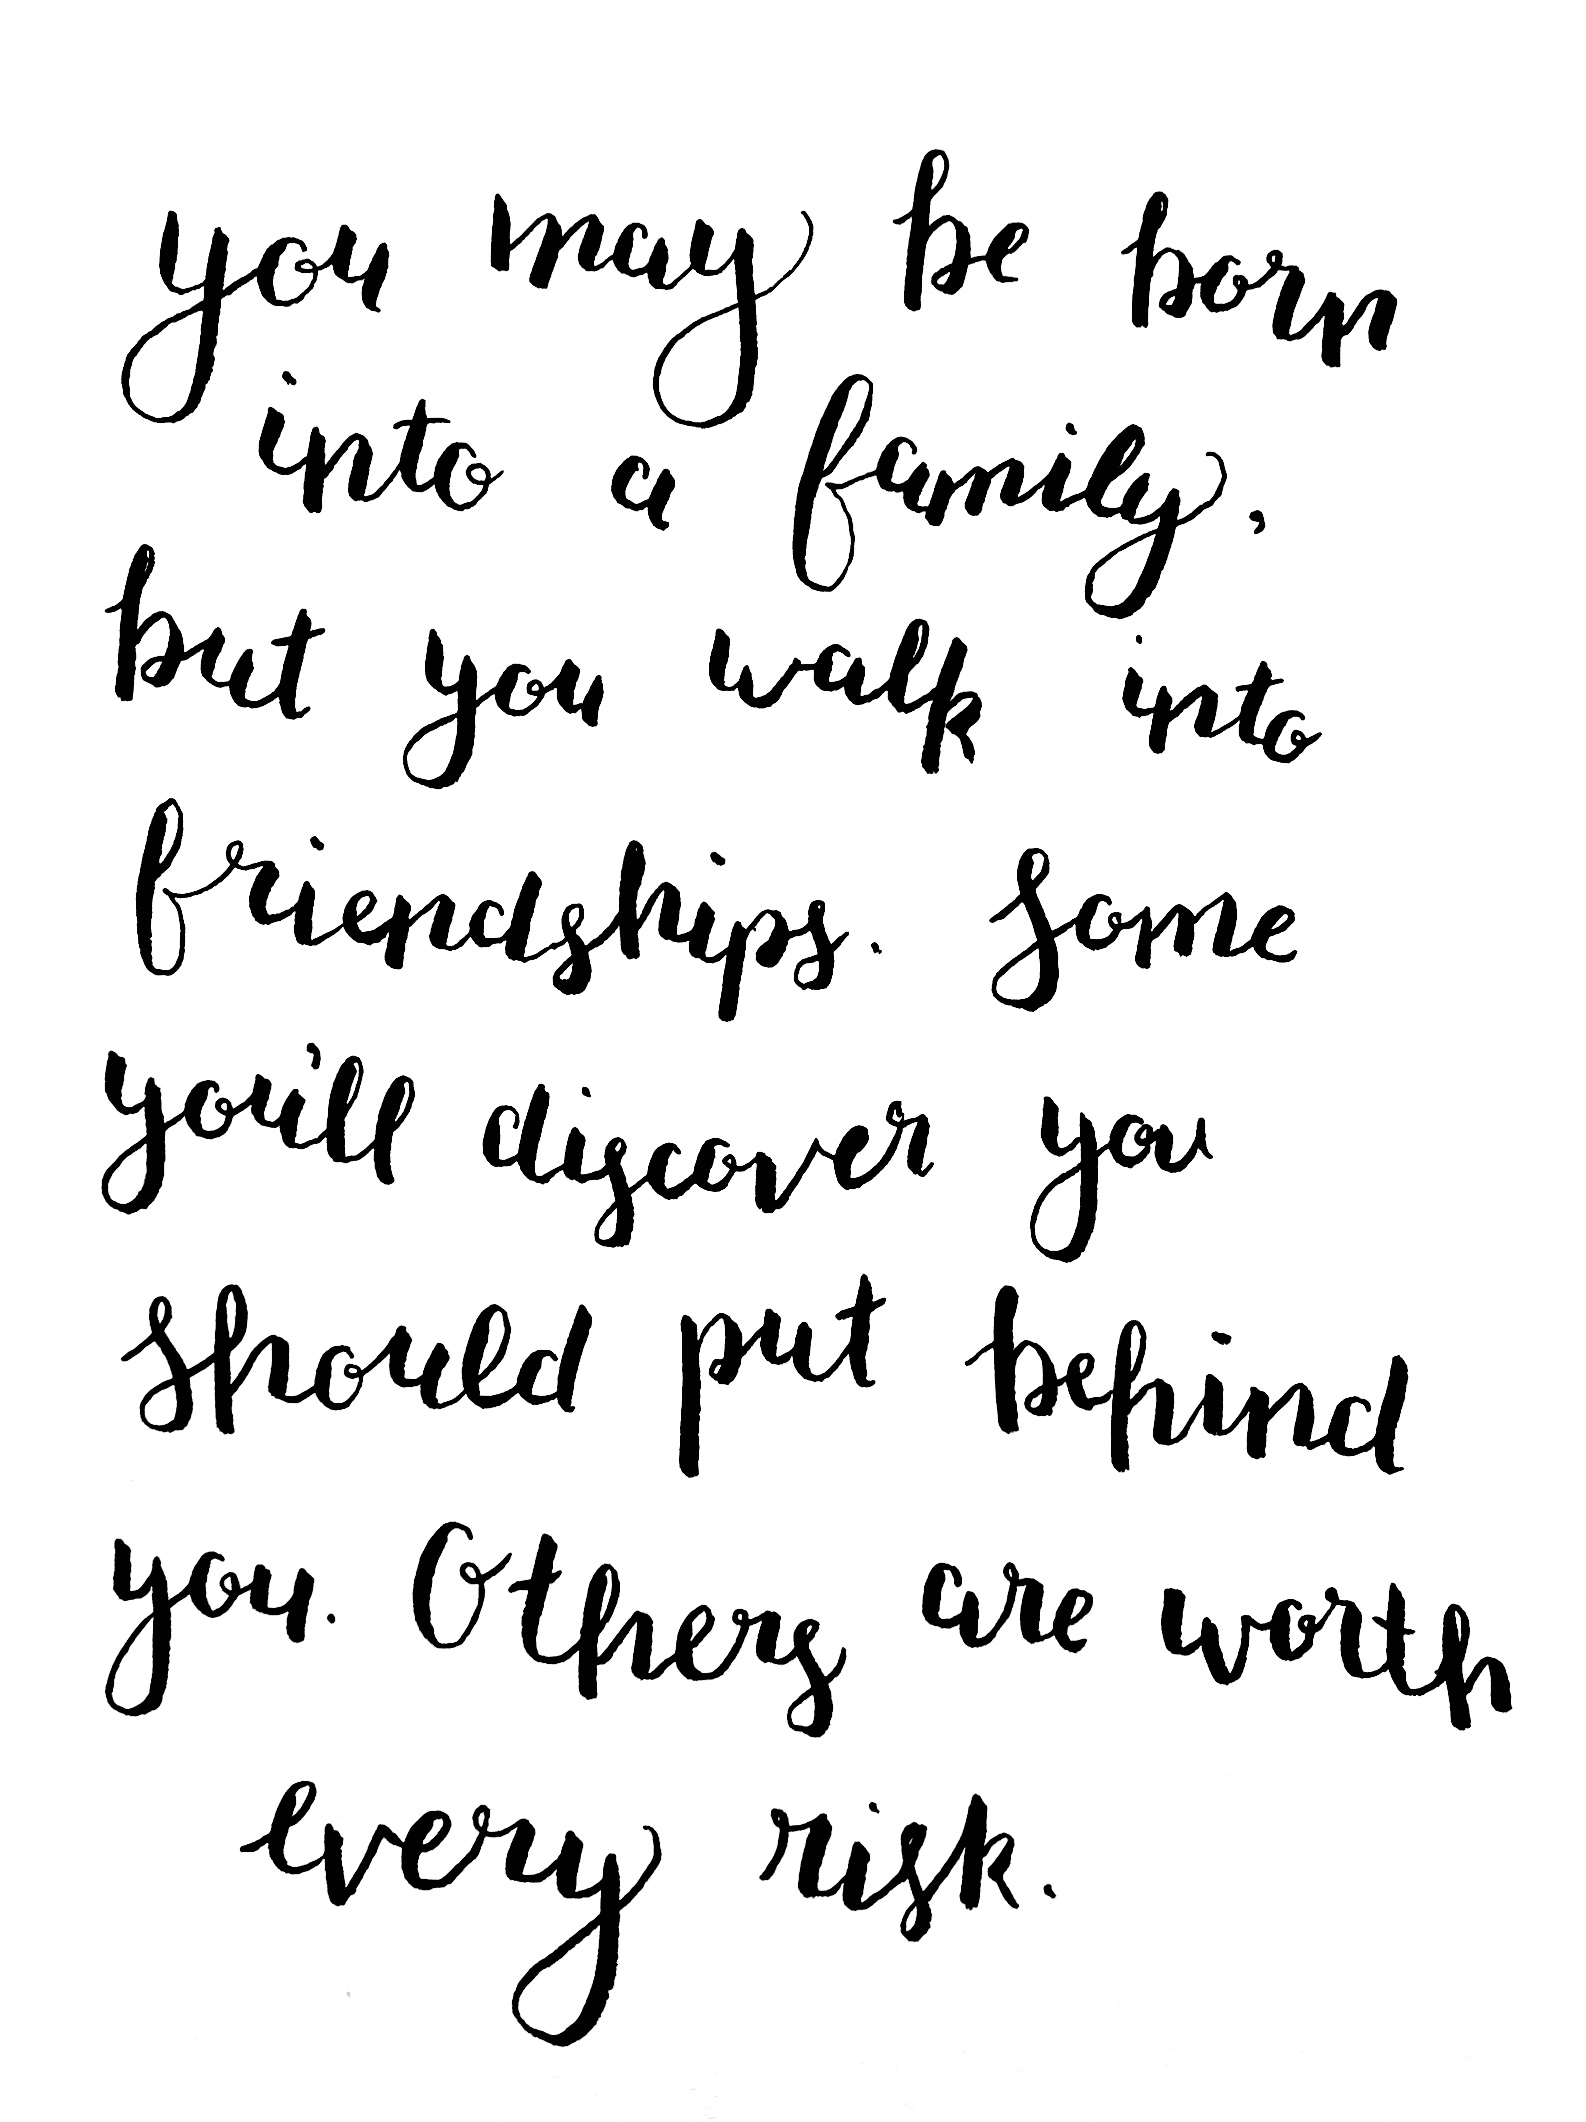 you may be born
into a family,
but you walk into
friendships. Some
you'll discover you
should put behind
you. Others are worth
every risk.